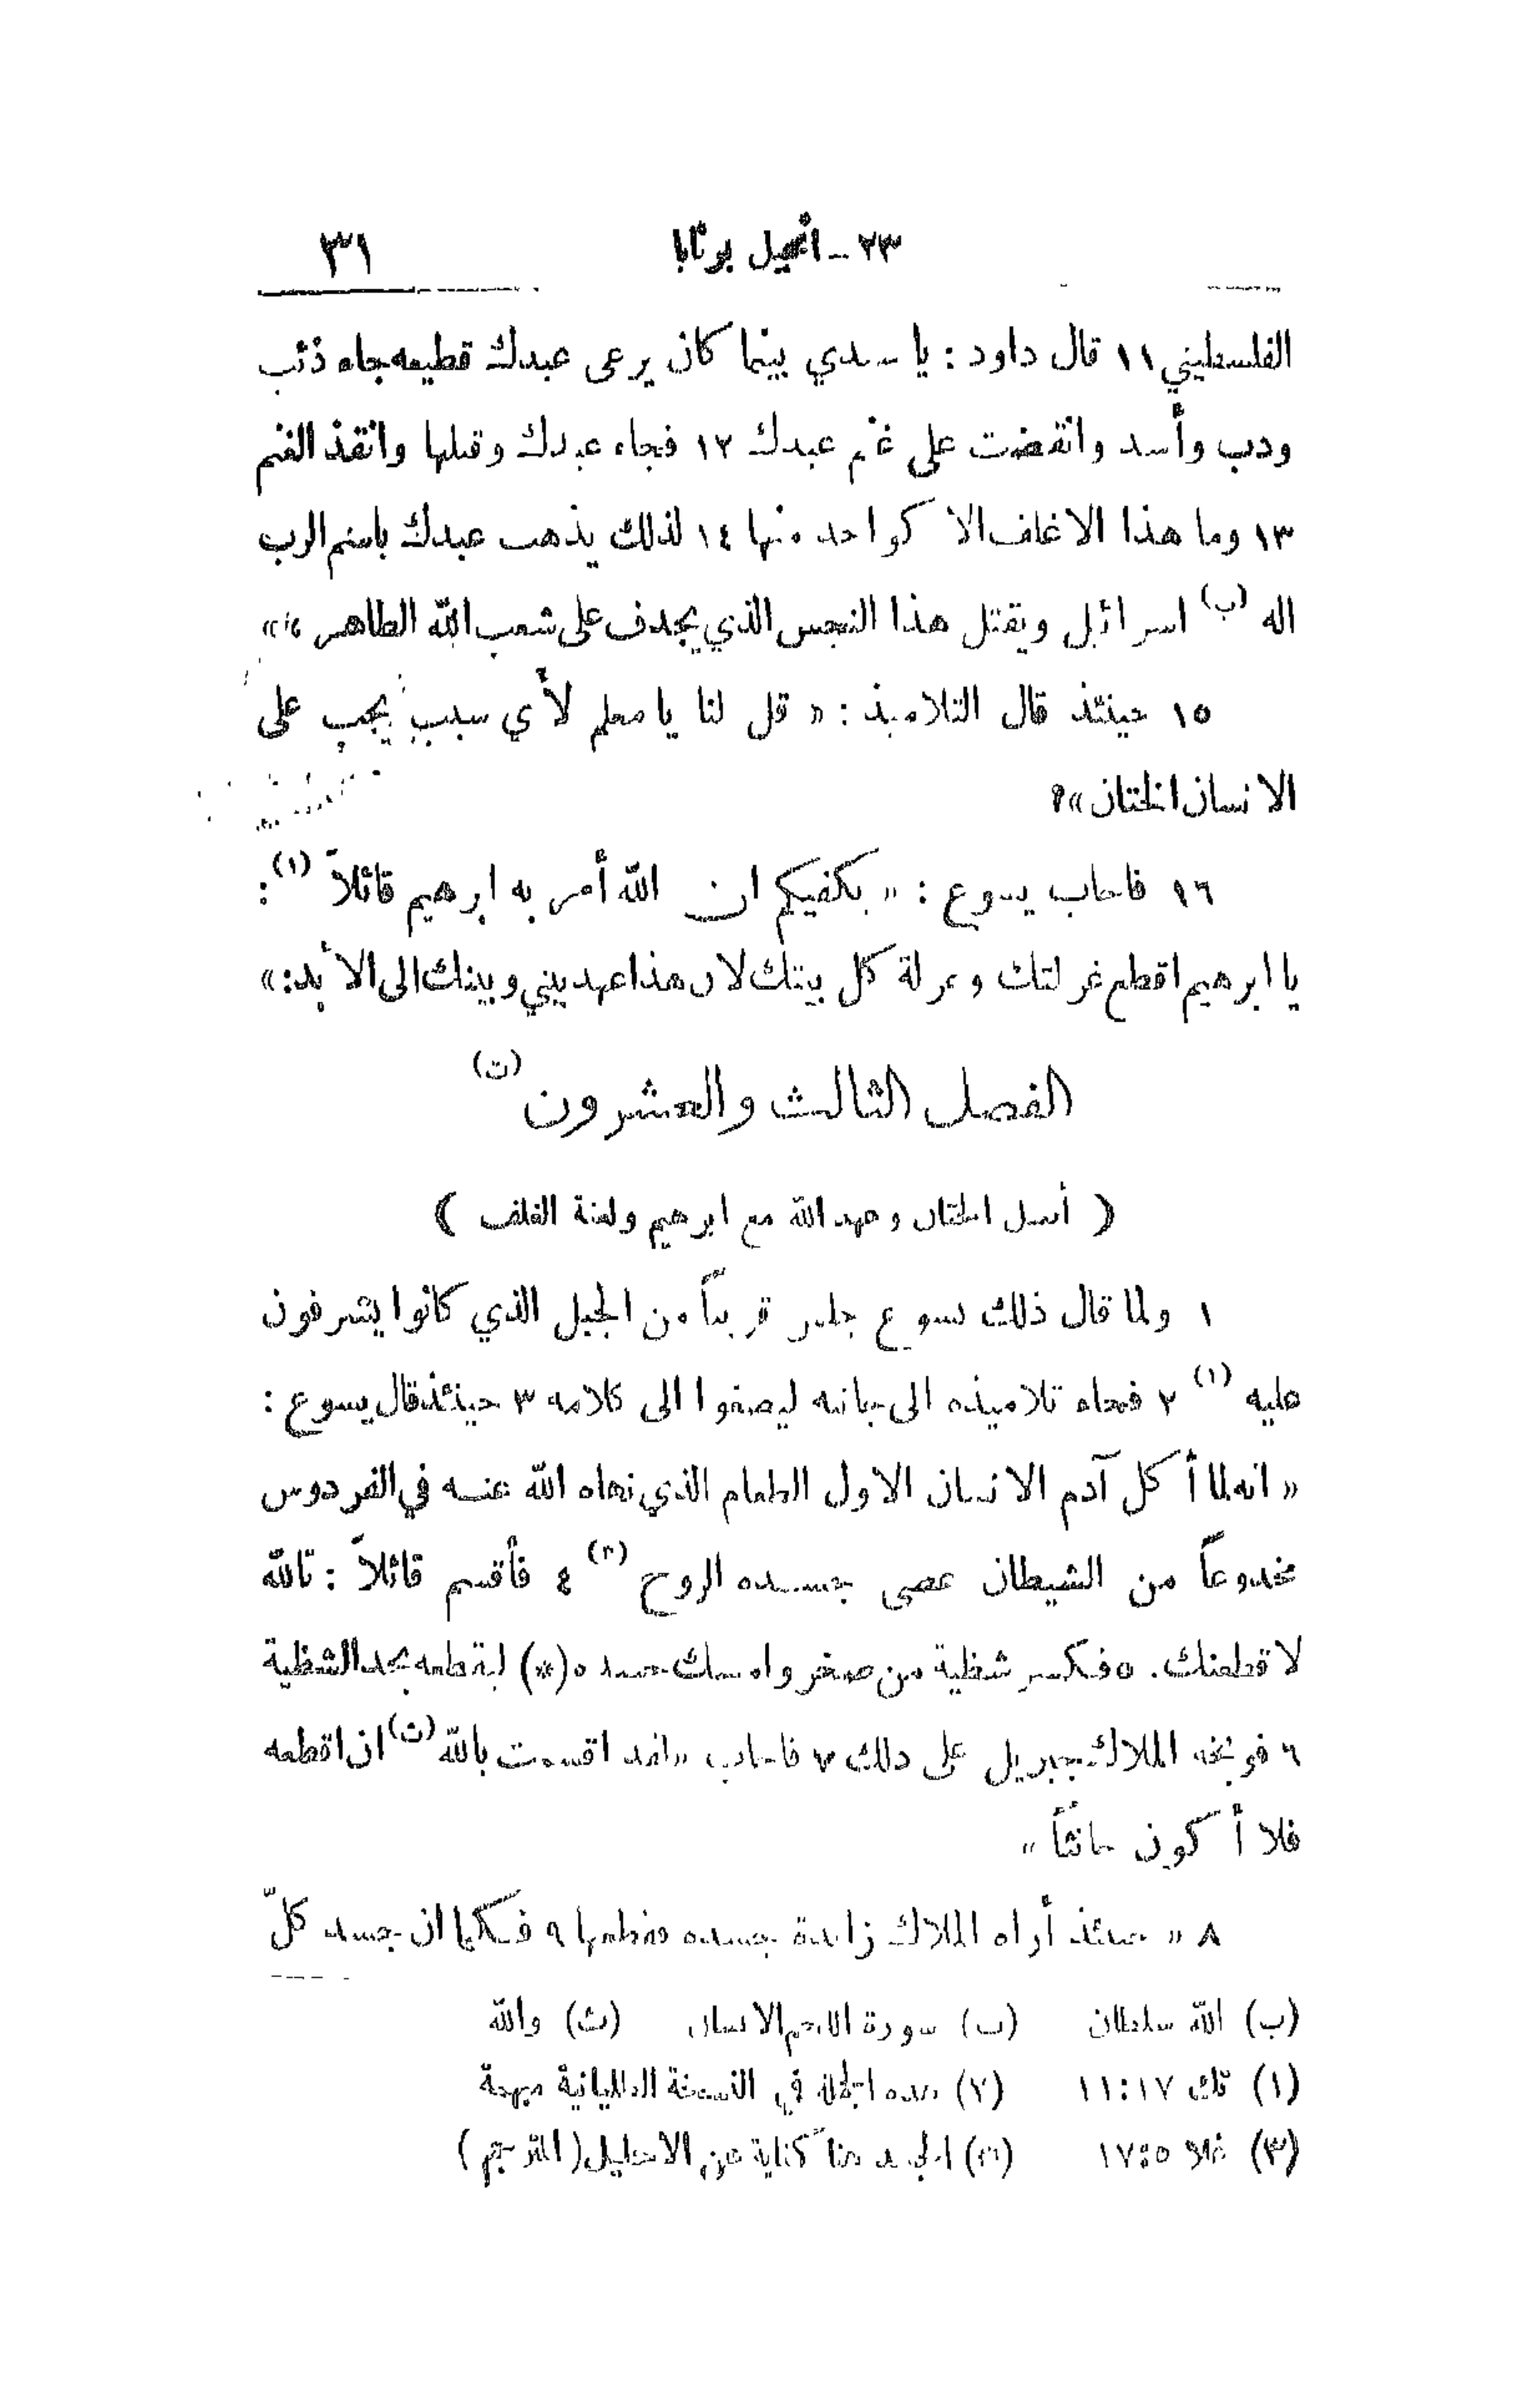 ٢٣ - انجيل برنابا ٣١
الفلسطيني ١١ قال داود : يا سيدي بينما كان يرعى عبدك قطيعه جاء ذئب
ودب وأسد وانقضت على غنم عبدك ١٢ فجاء عبدك وقتلها وانقذ الغنم
١٣ وما هذا الاغلف الا كواحد منها ١٤ لذلك يذهب عبدك باسم الرب
اله (ب) اسرائيل ويقتل هذا النجس الذي يجدف على شعب الله الطاهر »
١٥ حينئذ قال التلاميذ : « قل لنا يا معلم لأي سبب يجب على
الانسان الختان »؟
١٦ فاجاب يسوع : « يكفيكم ان الله أمر به ابرهيم قائلاً (١) :
يا ابرهيم اقطع غرلتك وغرلة كل بيتك لان هذا عهد بيني وبينك الى الأبد: »
الفصل الثالث والعشرون (ت)
( أصل الختان وعهد الله مع ابرهيم ولعنة الغلف )
١ ولما قال ذلك يسوع جلس قريباً من الجبل الذي كانوا يشرفون
عليه (١) ٢ فجاء تلاميذه الى جانبه ليصغوا الى كلامه ٣ حينئذ قال يسوع :
« انه لما أكل آدم الانسان الاول الطعام الذي نهاه الله عنه في الفردوس
مخدوعاً من الشيطان عصى جسده الروح (٣) ٤ فأقسم قائلاً : تالله
لاقطعنك . ٥ فكسر شظية من صخر وامسك جسده (*) ليقطعه بحد الشظية
٦ فوبخه الملاك جبريل على ذلك ٧ فاجاب « لقد اقسمت بالله (ث) ان اقطعه
فلا أكون حانثاً »
٨ « حينئذ أراه الملاك زائدة جسده فقطعها ٩ فكما ان جسد كلّ
(ب) الله سلطان (ت) سورة الانسان (ث) والله
(١) تك ١٧:١١ (٢) هذه الجملة في النسخة الطليانية مبهمة
(٣) غلا ٥:١٧ (*) الجسد هنا كناية عن الاحليل ( المترجم )